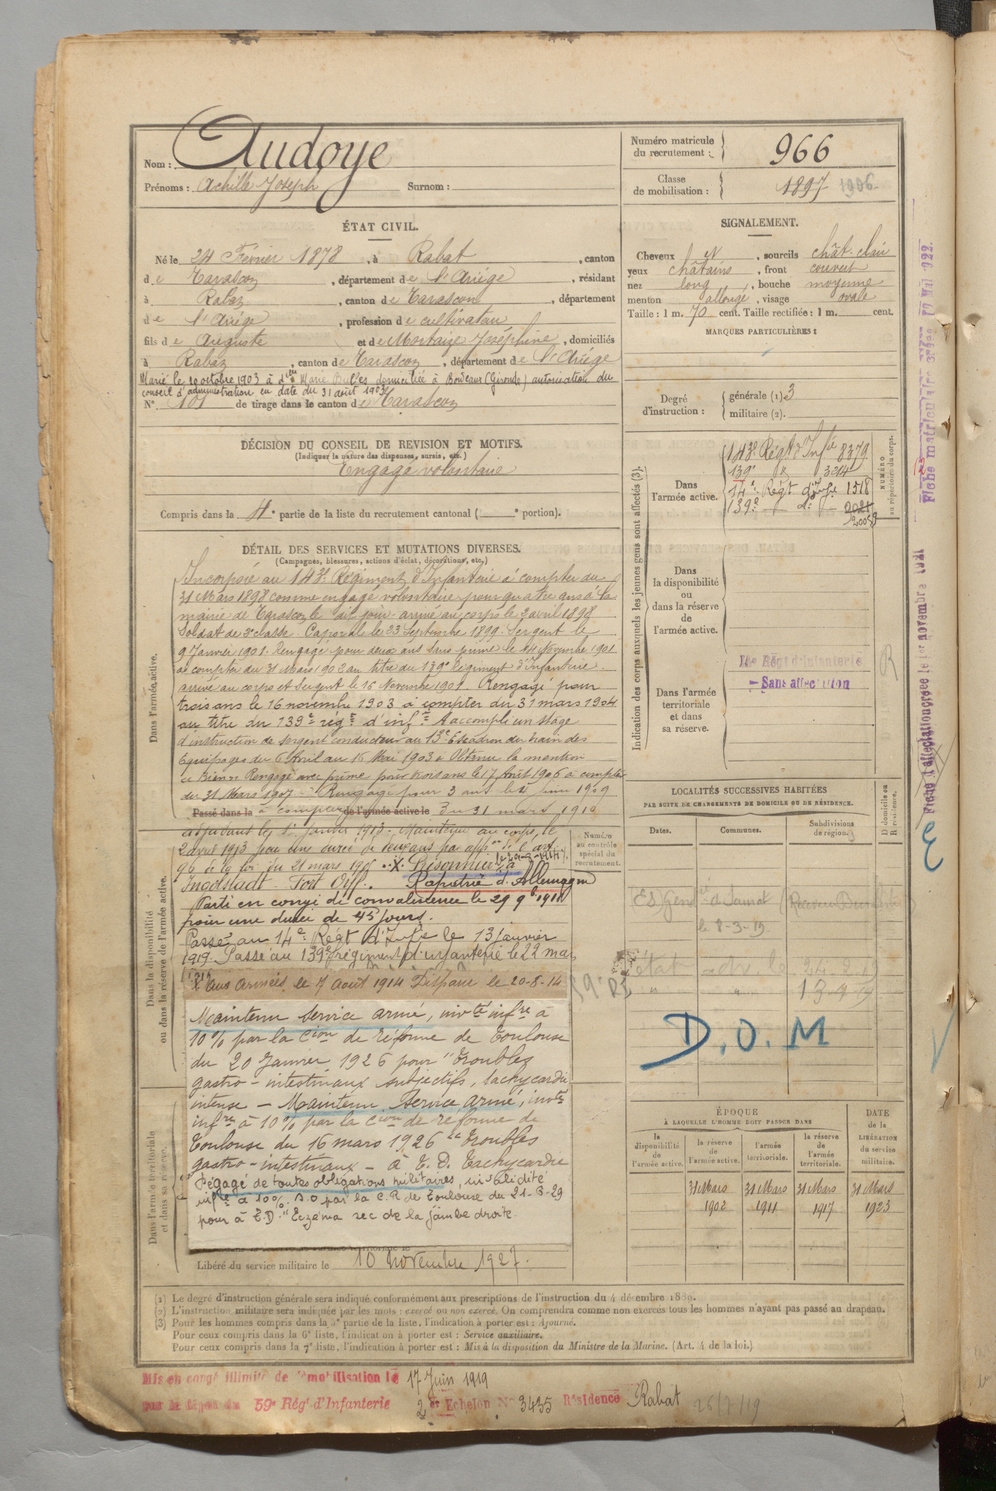 Nom : Audoye
Prénoms : Achille Joseph Surnom :
Numéro matricule du recrutement : 966
Classe de mobilisation : 1897 1906
ÉTAT CIVIL.
Né le 24 Février 1878, à Rabat, canton
de Tarascon, département de l'Ariège, résidant
à Rabat, canton de Tarascon, département
de l'Ariège, profession de cultivateur
fils de Auguste et de Mortaize Joséphine, domiciliés
à Rabat, canton de Tarascon, département de l'Ariège
Marié le 10 octobre 1903 à dlle Marie domiciliée à Bordeaux (Gironde) autorisation du
conseil d'administration en date du 31 août 1903
N° 101 de tirage dans le canton de Tarascon
SIGNALEMENT.
Cheveux et, sourcils chât. clair
yeux châtains, front couvert
nez long, bouche moyenne
menton allongé, visage ovale
Taille : 1 m. 70 cent. Taille rectifiée : 1 m. cent.
MARQUES PARTICULIÈRES :
Degré d'instruction : générale (1) 3
militaire (2).
DÉCISION DU CONSEIL DE REVISION ET MOTIFS.
(Indiquer la nature des dispenses, sursis, etc.)
Engagé volontaire
Compris dans la 4e partie de la liste du recrutement cantonal ( e portion).
Indication des corps auxquels les jeunes gens sont affectés (3).
NUMÉRO au répertoire du corps.
Dans l'armée active.
143e Régt d'Infie 8379
139e d° 3214
14e Régt d'Infie 1518
139e d°
Dans la disponibilité ou dans la réserve de l'armée active.
Dans l'armée territoriale et dans sa réserve.
Rég d'infanterie
Sans affectation
DÉTAIL DES SERVICES ET MUTATIONS DIVERSES.
(Campagnes, blessures, actions d'éclat, décorations, etc.)
Dans l'armée active.
Incorporé au 143e Régiment d'Infanterie à compter du
31 Mars 1898 comme engagé volontaire pour quatre ans à la
mairie de Tarascon le dit jour arrivé au corps le 2 avril 1898
Soldat de 2e classe. Caporal le 23 Septembre 1899. Sergent le
9 Janvier 1901. Rengagé pour deux ans sans prime le Novembre 1901
à compter du 31 Mars 1902 au titre du 139e Régiment d'Infanterie.
arrivé au corps et Sergent le 16 Novembre 1901. Rengagé pour
trois ans le 16 novembre 1903 à compter du 31 mars 1904
au titre du 139e régt d'inf. A accompli un stage
d'instruction de sergent conducteur au 13e Escadron du train des
équipages du 6 Avril au 16 Mai 1903 a obtenu la mention
Bien. Rengagé avec prime pour trois ans le 17 Août 1906 à compter
du 31 Mars 1907. Rengagé pour 3 ans le Juin 1909
Passé dans la à compter de l'armée active le du 31 mars 1910
adjudant le 1 janvier 1913. Maintenu au corps le
2 avril 1913 pour une durée de ans par appon de l'art
de la loi du 21 mars 1905 X. Prisonnier
Ingolstadt Fort Orff. Rapatrié d'Allemagne
Parti en congé de convalescence le 29 9bre 1918
pour une durée de 45 jours.
Passé au 14e Régt d'Infie le 13 janvier
1919. Passé au 139e régiment d'infanterie le 22 mai
1919
X Aux Armées le 7 août 1914 Disparu le 20-8-14
Dans la disponibilité ou dans la réserve de l'armée active.
Numéro au contrôle spécial du recrutement.
Maintenu Service armé, invté infre à
10% par la Cion de réforme de Toulouse
du 20 Janvier 1926 pour "Troubles
gastro-intestinaux subjectifs, tachycardie
intense - Maintenu Service armé, invté
infre à 10% par la Cion de réforme de
Toulouse du 16 mars 1926 Troubles
gastro-intestinaux - à E. D. Tachycardie
Dégagé de toutes obligations militaires, invalidité
infre à 10% S.O par la C.R de Toulouse du 21-3-29
pour à E.D. "Eczéma sec de la jambe droite
Dans l'armée territoriale et dans sa réserve.
Libéré du service militaire le 10 novembre 1927.
LOCALITÉS SUCCESSIVES HABITÉES
PAR SUITE DE CHANGEMENTS DE DOMICILE OU DE RÉSIDENCE.
Dates. Communes. Subdivisions de région. D domicile ou R résidence.
le 8-3-19
D.O.M
ÉPOQUE
À LAQUELLE L'HOMME DOIT PASSER DANS
DATE de la LIBÉRATION du service militaire.
la disponibilité de l'armée active.
la réserve de l'armée active.
l'armée territoriale.
la réserve de l'armée territoriale.
31 Mars 1902
31 Mars 1911
31 Mars 1917
31 Mars 1923
(1) Le degré d'instruction générale sera indiqué conformément aux prescriptions de l'instruction du 4 décembre 1889.
(2) L'instruction militaire sera indiquée par les mots : exercé ou non exercé. On comprendra comme non exercés tous les hommes n'ayant pas passé au drapeau.
(3) Pour les hommes compris dans la 5e partie de la liste, l'indication à porter est : Ajourné.
Pour ceux compris dans la 6e liste, l'indication à porter est : Service auxiliaire.
Pour ceux compris dans la 7e liste, l'indication à porter est : Mis à la disposition du Ministre de la Marine. (Art. 4 de la loi.)
Mis en congé illimité de démobilisation le 17 Juin 1919
par le dépôt du 59e Rég. d'Infanterie
2e Echelon N° 3435 Résidence Rabat 26/7/19